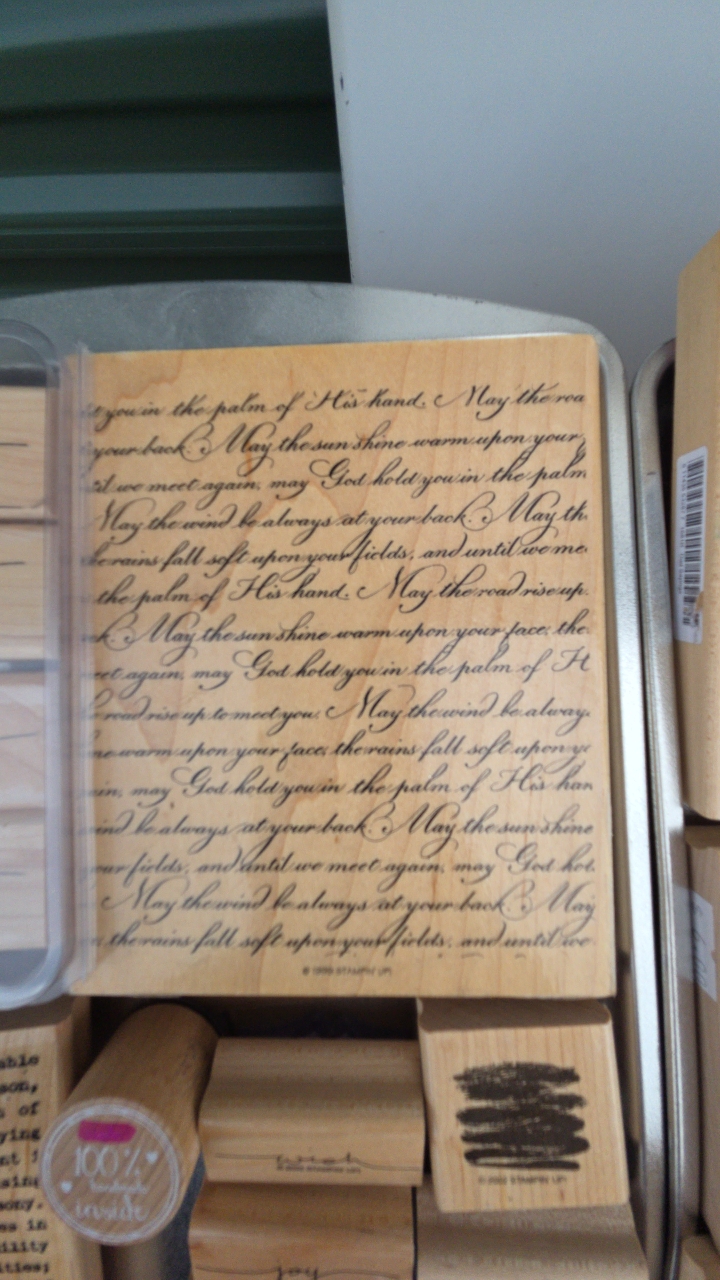 you in the palm of His hand. May the roa
your back. May the sun shine warm upon your
til we meet again, may God hold you in the palm
May the wind be always at your back. May th
he rains fall soft upon your fields, and until we me
the palm of His hand. May the road rise up
ck. May the sun shine warm upon your face, the
eet again, may God hold you in the palm of H
road rise up to meet you. May the wind be alway
ne warm upon your face, the rains fall soft upon yo
ain, may God hold you in the palm of His han
wind be always at your back. May the sun shine
our fields, and until we meet again, may God hol
May the wind be always at your back. May
the rains fall soft upon your fields, and until we
© 1999 STAMPIN' UP!
able
son,
s of
ying
nt i
sing
sony.
es in
ility
ities;
100%
inside
wish
© 2002 STAMPIN' UP!
joy
© 2002 STAMPIN' UP!